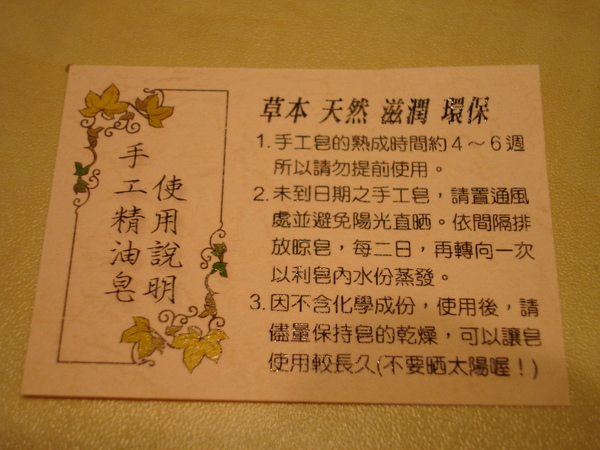 手工精油皂
使用說明
草本 天然 滋潤 環保
1.手工皂的熟成時間約4～6週
所以請勿提前使用。
2.未到日期之手工皂，請置通風
處並避免陽光直晒。依間隔排
放晾皂，每二日，再轉向一次
以利皂內水份蒸發。
3.因不含化學成份，使用後，請
儘量保持皂的乾燥，可以讓皂
使用較長久(不要晒太陽喔！)